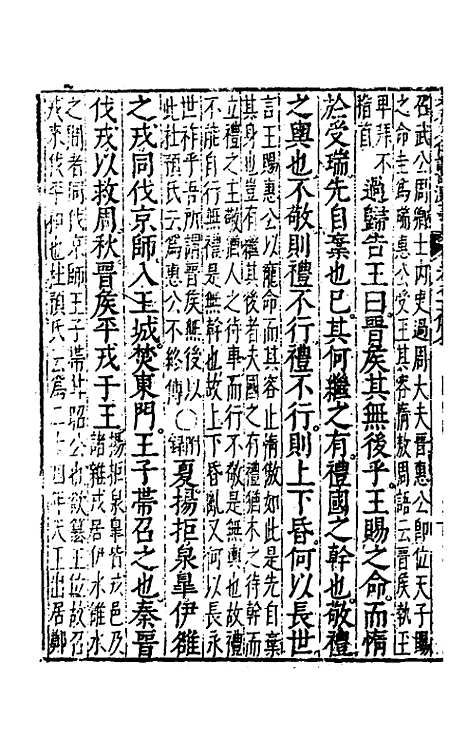 召武公周卿士內史過周大夫晉惠公即位天子賜
之命圭為瑞惠公受玉其容惰故周語云晉侯執玉
卑拜不
稽首
過歸告王曰晉侯其無後乎王賜之命而惰
於受瑞先自棄也已其何繼之有禮國之幹也敬禮
之輿也不敬則禮不行禮不行則上下昏何以長世
言王賜惠公以寵命而其容止惰傲如此是先自棄
其身也豈有繼其後者夫國之有禮猶木之待幹而
立禮之有敬猶人之待車而行不敬是無輿也故禮
不能自行無禮是無幹也故上下昏亂又何以長永
世祚乎吾所謂晉侯無後以
此杜預云為惠公不終傳
○附
錄
夏揚拒泉皐伊雒
之戎同伐京師入王城焚東門王子帶召之也秦晉
伐戎以救周秋晉侯平戎于王
揚拒泉皐皆戎邑及
諸雜戎居伊水雒水
之間者同伐京師王子帶甘昭公也欲篡王位故召
戎來伐平和也杜預氏云為二十四年天王出居鄭